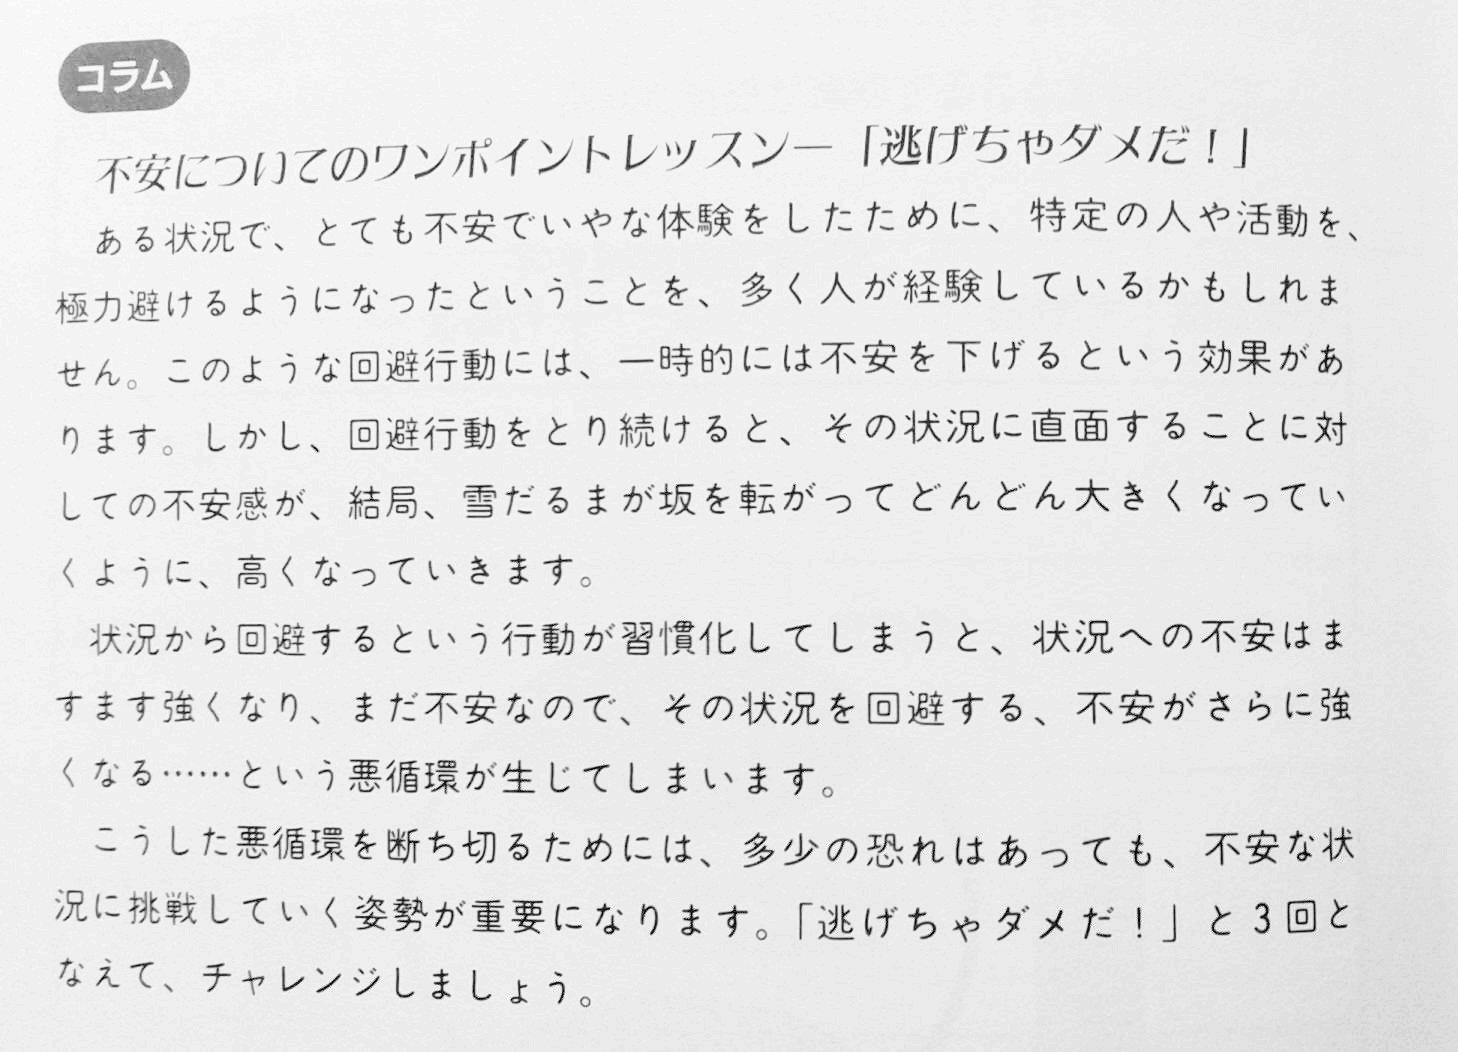 コラム
不安についてのワンポイントレッスン―「逃げちゃダメだ！」
ある状況で、とても不安でいやな体験をしたために、特定の人や活動を、
極力避けるようになったということを、多く人が経験しているかもしれま
せん。このような回避行動には、一時的には不安を下げるという効果があ
ります。しかし、回避行動をとり続けると、その状況に直面することに対
しての不安感が、結局、雪だるまが坂を転がってどんどん大きくなってい
くように、高くなっていきます。
状況から回避するという行動が習慣化してしまうと、状況への不安はま
すます強くなり、まだ不安なので、その状況を回避する、不安がさらに強
くなる……という悪循環が生じてしまいます。
こうした悪循環を断ち切るためには、多少の恐れはあっても、不安な状
況に挑戦していく姿勢が重要になります。「逃げちゃダメだ！」と3回と
なえて、チャレンジしましょう。